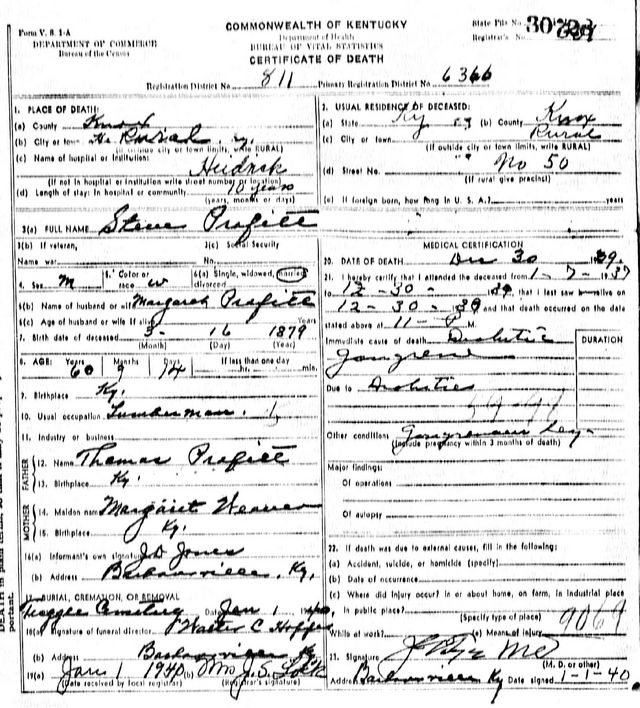 Form V. S. 1-A
DEPARTMENT OF COMMERCE
Bureau of the Census
COMMONWEALTH OF KENTUCKY
Department of Health
BUREAU OF VITAL STATISTICS
CERTIFICATE OF DEATH
State File No.
Registrar's No.
Registration District No. 811 Primary Registration District No. 6366
1. PLACE OF DEATH:
(a) County Knox
(b) City or town Rural
(If outside city or town limits, write RURAL)
(c) Name of hospital or institution: Heidrick
(If not in hospital or institution write street number or location)
(d) Length of stay: In hospital or community 10 years
(years, months or days)
2. USUAL RESIDENCE OF DECEASED:
(a) State Ky (b) County Knox
(c) City or town Rural
(If outside city or town limits, write RURAL)
(d) Street No. No 50
(If rural give precinct)
(e) If foreign born, how long in U. S. A.? years
3(a) FULL NAME Steve Profitt
3(b) If veteran,
Name war
3(c) Social Security
No.
4. Sex M 5. Color or race W 6(a) Single, widowed, married, divorced
6(b) Name of husband or wife Margaret Profitt
6(c) Age of husband or wife if alive Years
7. Birth date of deceased 3- 16 1879
(Month) (Day) (Year)
8. AGE: Years 60 Months 9 Days 14 If less than one day hr. min.
9. Birthplace Ky.
10. Usual occupation Lumberman.
11. Industry or business
FATHER
12. Name Thomas Profitt
13. Birthplace Ky.
MOTHER
14. Maiden name Margaret Weaver
15. Birthplace Ky.
16(a) Informant's own signature J.D. Jones
(b) Address Barbourville, Ky.
17. BURIAL, CREMATION, OR REMOVAL
Cemetery Date Jan 1 1940
18(a) Signature of funeral director Walter C Hopper
(b) Address Barbourville Ky
19(a) Jan 1 1940 (b) Mrs J.S.
(Date received by local registrar) (Registrar's signature)
MEDICAL CERTIFICATION
20. DATE OF DEATH Dec 30 1939.
21. I hereby certify that I attended the deceased from 1-7-1937
to 12-30- 1939, that I last saw alive on
12-30-39 and that death occurred on the date
stated above at 11- M.
Immediate cause of death Diabetic DURATION
Gangrene
Due to Diabetes
Other conditions Gangrenous leg
(Include pregnancy within 3 months of death)
Major findings:
Of operations
Of autopsy
22. If death was due to external causes, fill in the following:
(a) Accident, suicide, or homicide (specify)
(b) Date of occurrence
(c) Where did injury occur? in or about home, on farm, in industrial place
in public place?
(Specify type of place)
While at work? (e) Means of injury
23. Signature MD
(M. D. or other)
Address Barbourville Ky Date signed 1-1-40